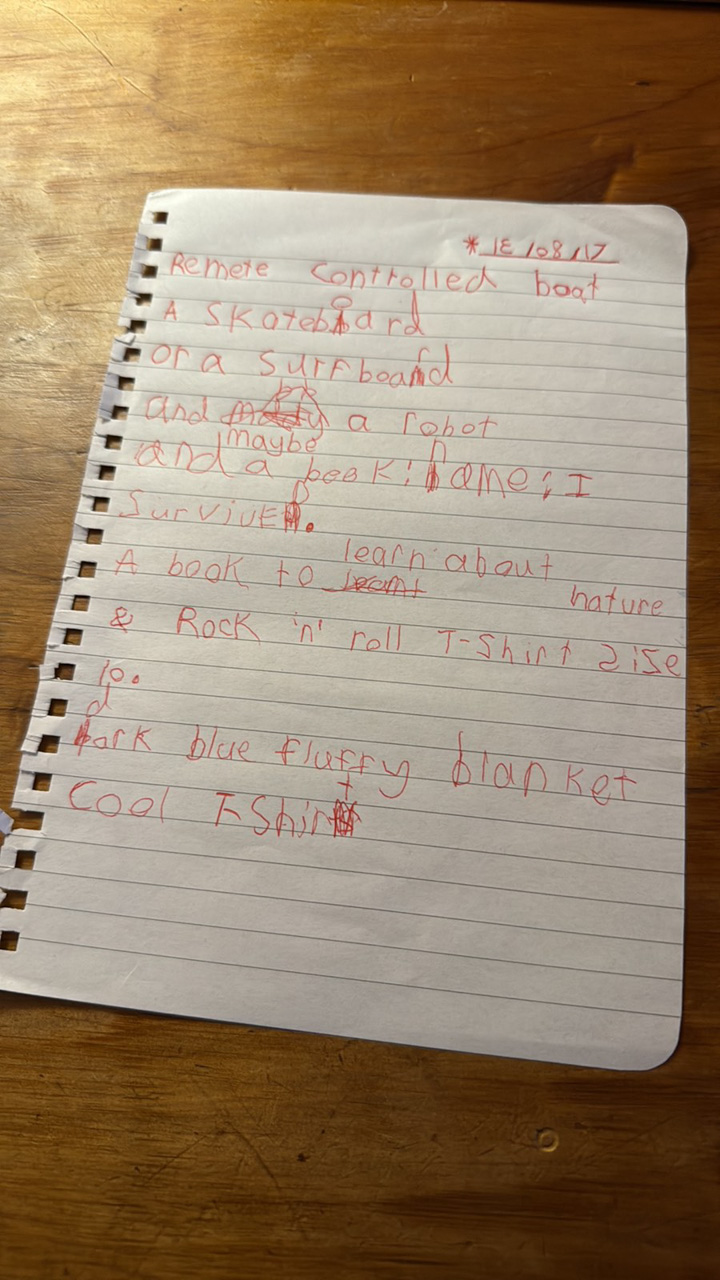 * 1E/08/17
Remete controlled boat
A skateboard
or a surfboard
and maybe a robot
and a book: name: I
Survived.
A book to learn about nature
& Rock 'n' roll T-Shirt size
10.
dark blue fluffy blanket
Cool T-Shirt